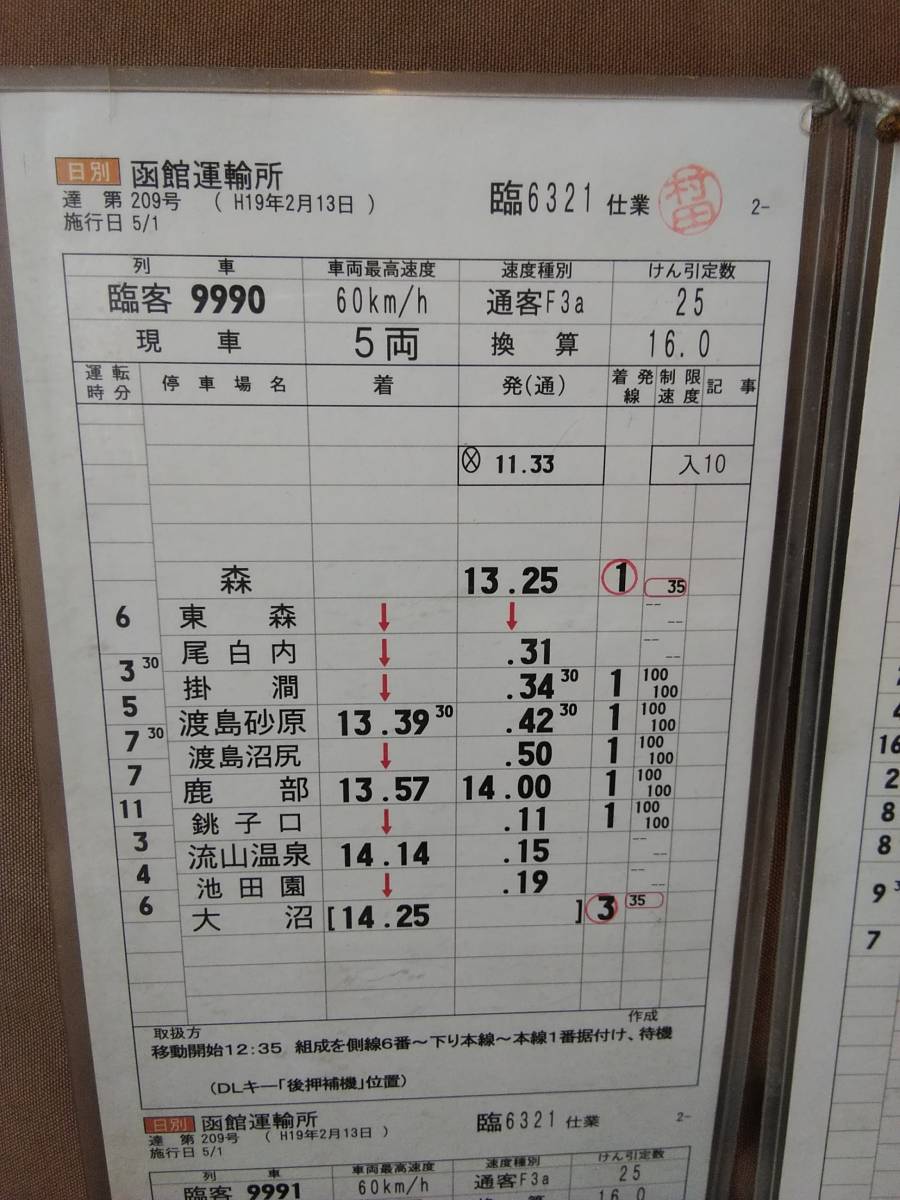 日別 函館運輸所
達 第 209号 ( H19年2月13日 )
施行日 5/1
臨6321 仕業 村田 2-
列車 車両最高速度 速度種別 けん引定数
臨客 9990 60km/h 通客F3a 25
現車 5両 換算 16.0
運転時分 停車場名 着 発(通) 着発線 制限速度 記事
⊗ 11.33 入10
森 13.25 1 35
6 東森 ↓ ↓ -- --
尾白内 ↓ .31 -- --
3 30 掛澗 ↓ .34 30 1 100 100
5 渡島砂原 13.39 30 .42 30 1 100 100
7 30 渡島沼尻 ↓ .50 1 100 100
7 鹿部 13.57 14.00 1 100 100
11 銚子口 ↓ .11 1 100 100
3 流山温泉 14.14 .15 -- --
4 池田園 ↓ .19 -- --
6 大沼 [14.25 ] 3 35
取扱方 作成
移動開始12:35 組成を側線6番~下り本線~本線1番据付け、待機
(DLキー「後押補機」位置)
日別 函館運輸所
達 第 209号 ( H19年2月13日 )
施行日 5/1
臨6321 仕業 2-
列車 車両最高速度 速度種別 けん引定数
臨客 9991 60km/h 通客F3a 25
換算 16.0
16
2
8
8
9
7